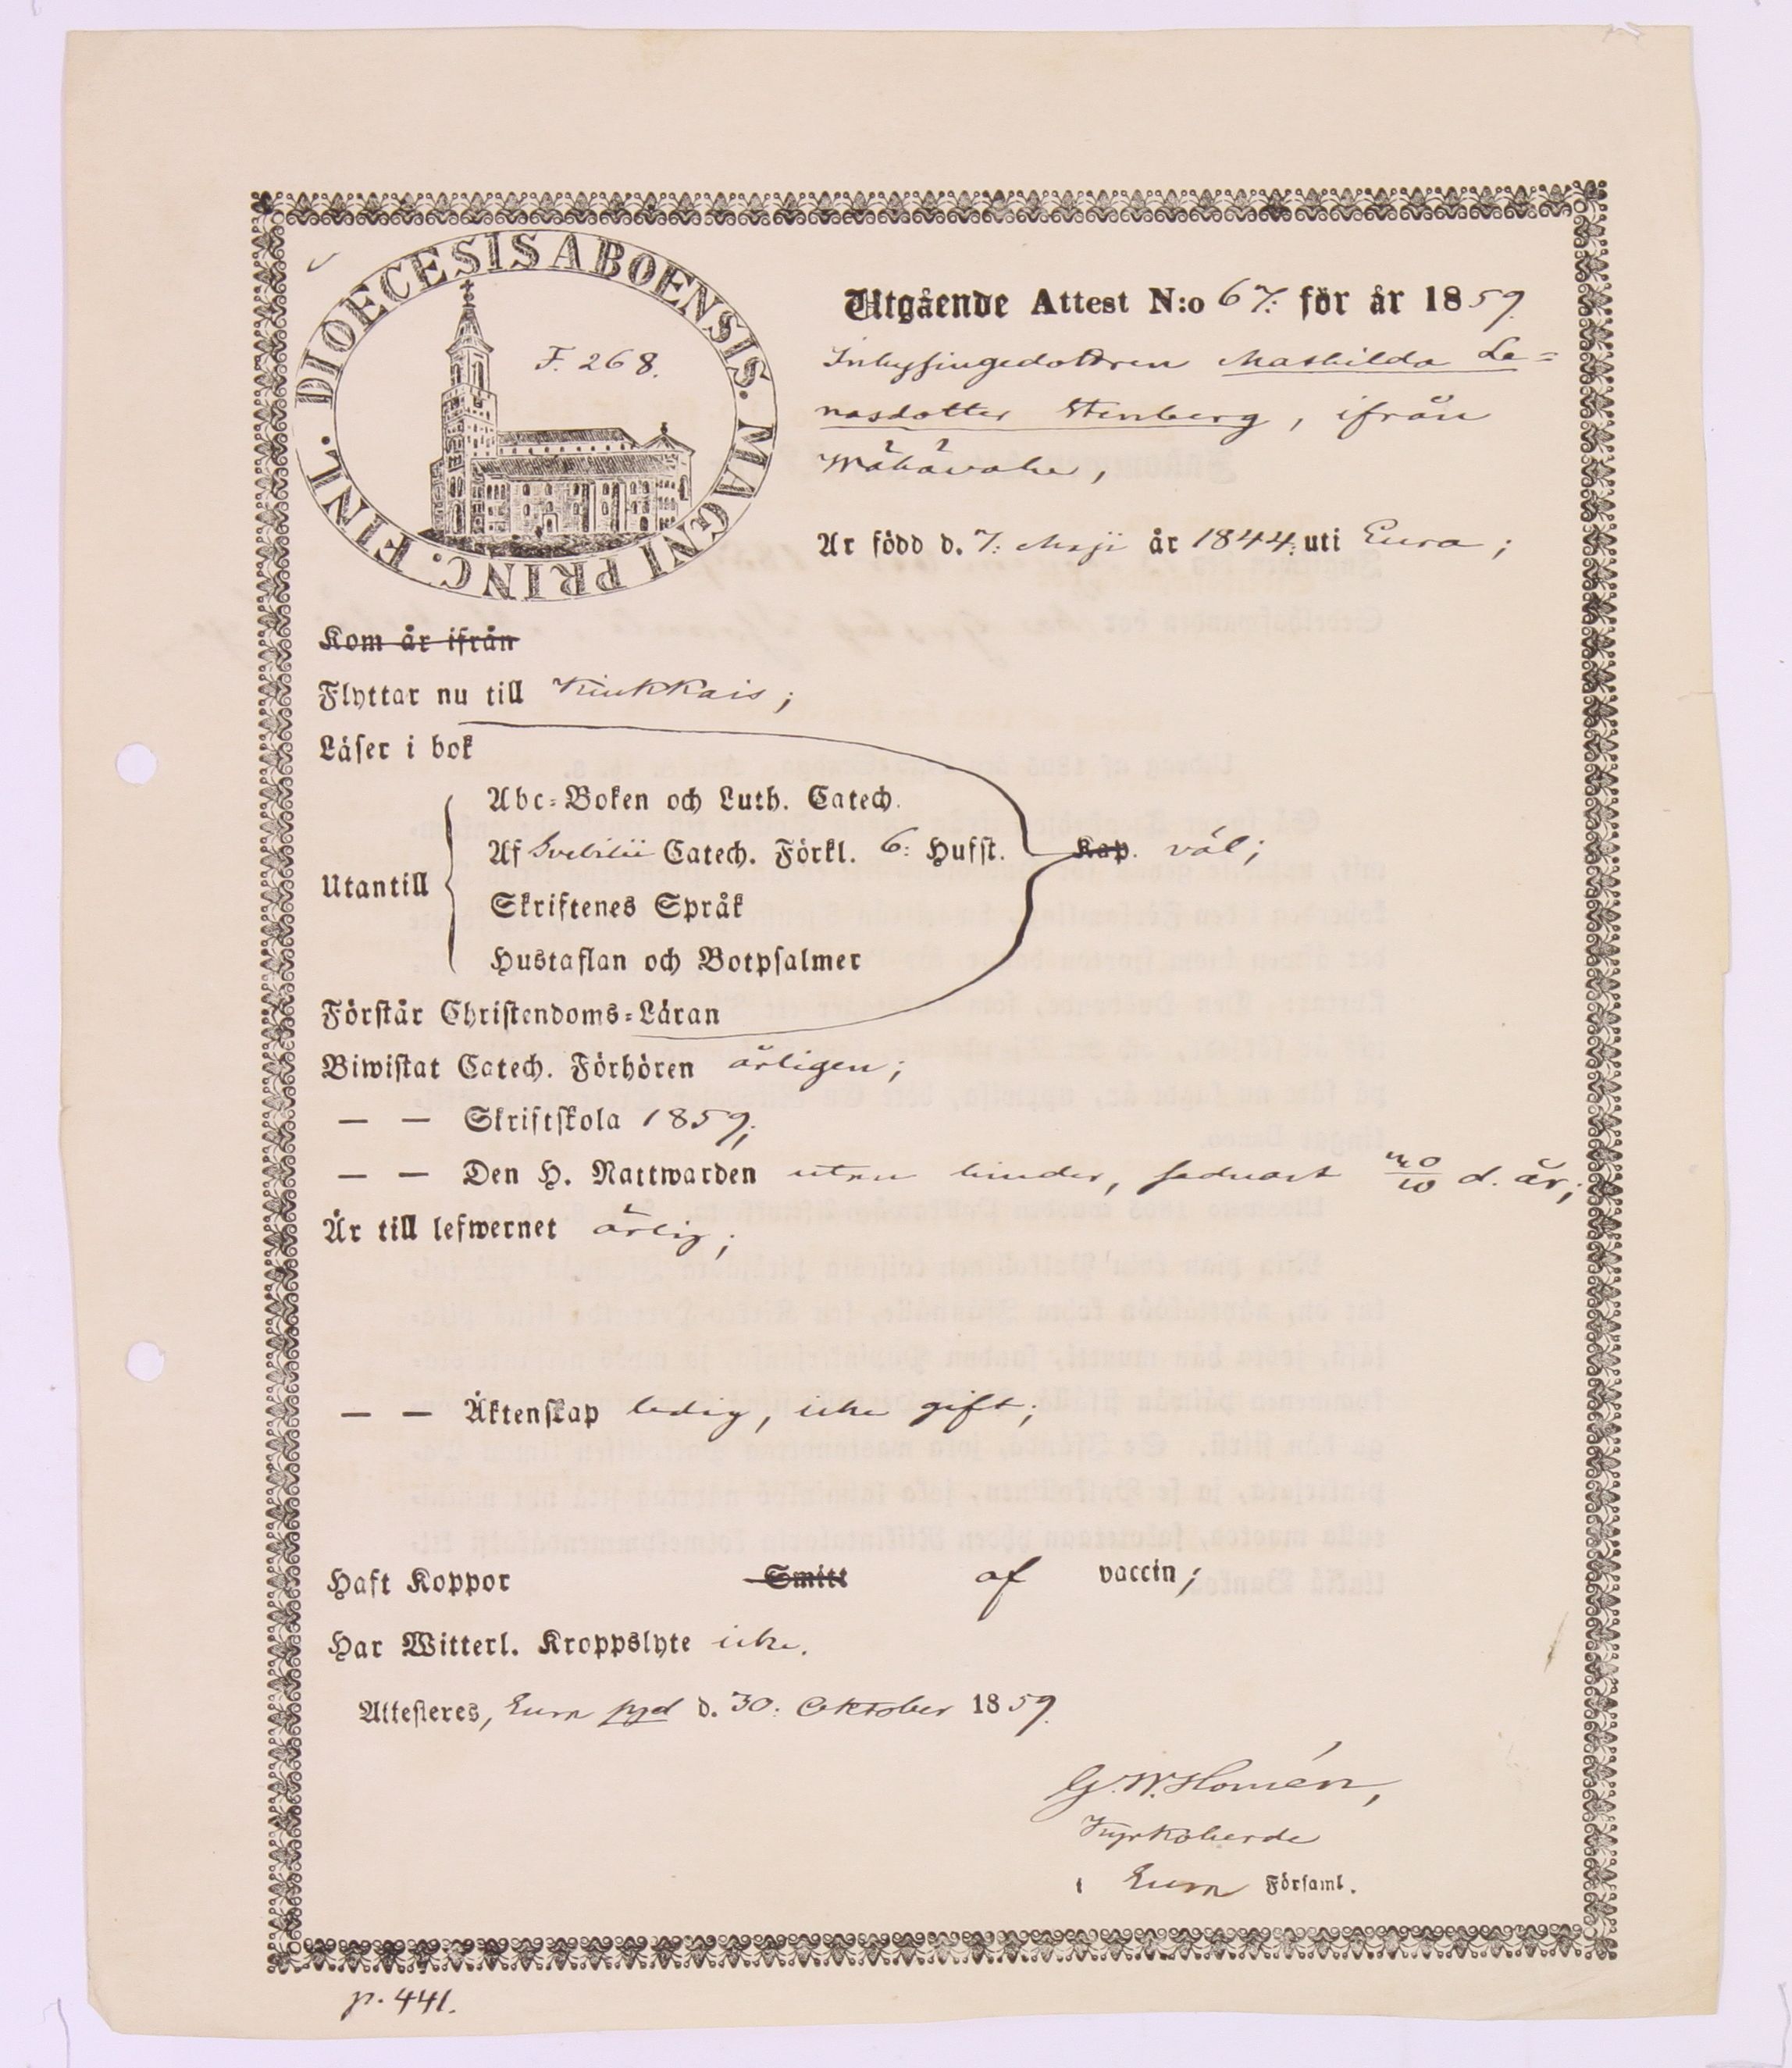 DIOECESIS ABOENSIS. MAGNI PRINC. FINL.
F. 268.
Utgående Attest N:o 67. för år 1859.
Inhysingedottren Mathilda Le=
nasdotter Stenberg, ifrån
Är född d. 7: Maji år 1844: uti Eura;
Kom år ifrån
Flyttar nu till Kiukkais;
Läser i bok
Utantill
Abc=Boken och Luth. Catech.
Af Svebilii Catech. Förkl. 6: Hufst. Kap. väl;
Skriftenes Språk
Hustaflan och Botpsalmer
Förstår Christendoms=Läran
Biwistat Catech. Förhören årligen;
— — Skriftskola 1859;
— — Den H. Nattwarden utan hinder, sednast d. år;
Är till lefwernet ärlig;
— — Äktenskap ledig, icke gift;
Haft Koppor Smitt af vaccin;
Har Witterl. Kroppslyte icke.
Attesteres, Eura pgd d. 30: Oktober 1859.
G. W. Homén,
Kyrkoherde
i Eura Församl.
p. 441.